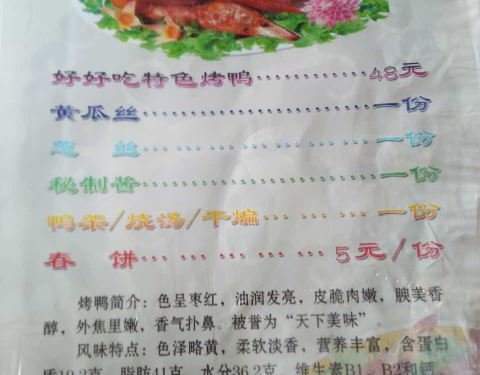 好好吃特色烤鸭……………48元
黄瓜丝……………………一份
葱 丝……………………一份
秘制酱……………………一份
鸭架/烧汤/干煸……………一份
春 饼……………………5元/份
烤鸭简介：色呈枣红，油润发亮，皮脆肉嫩，腴美香
醇，外焦里嫩，香气扑鼻。被誉为“天下美味”。
风味特点：色泽略黄，柔软淡香，营养丰富，含蛋白
质10.2克，脂肪41克，水分36.2克，维生素B1、B2和钙